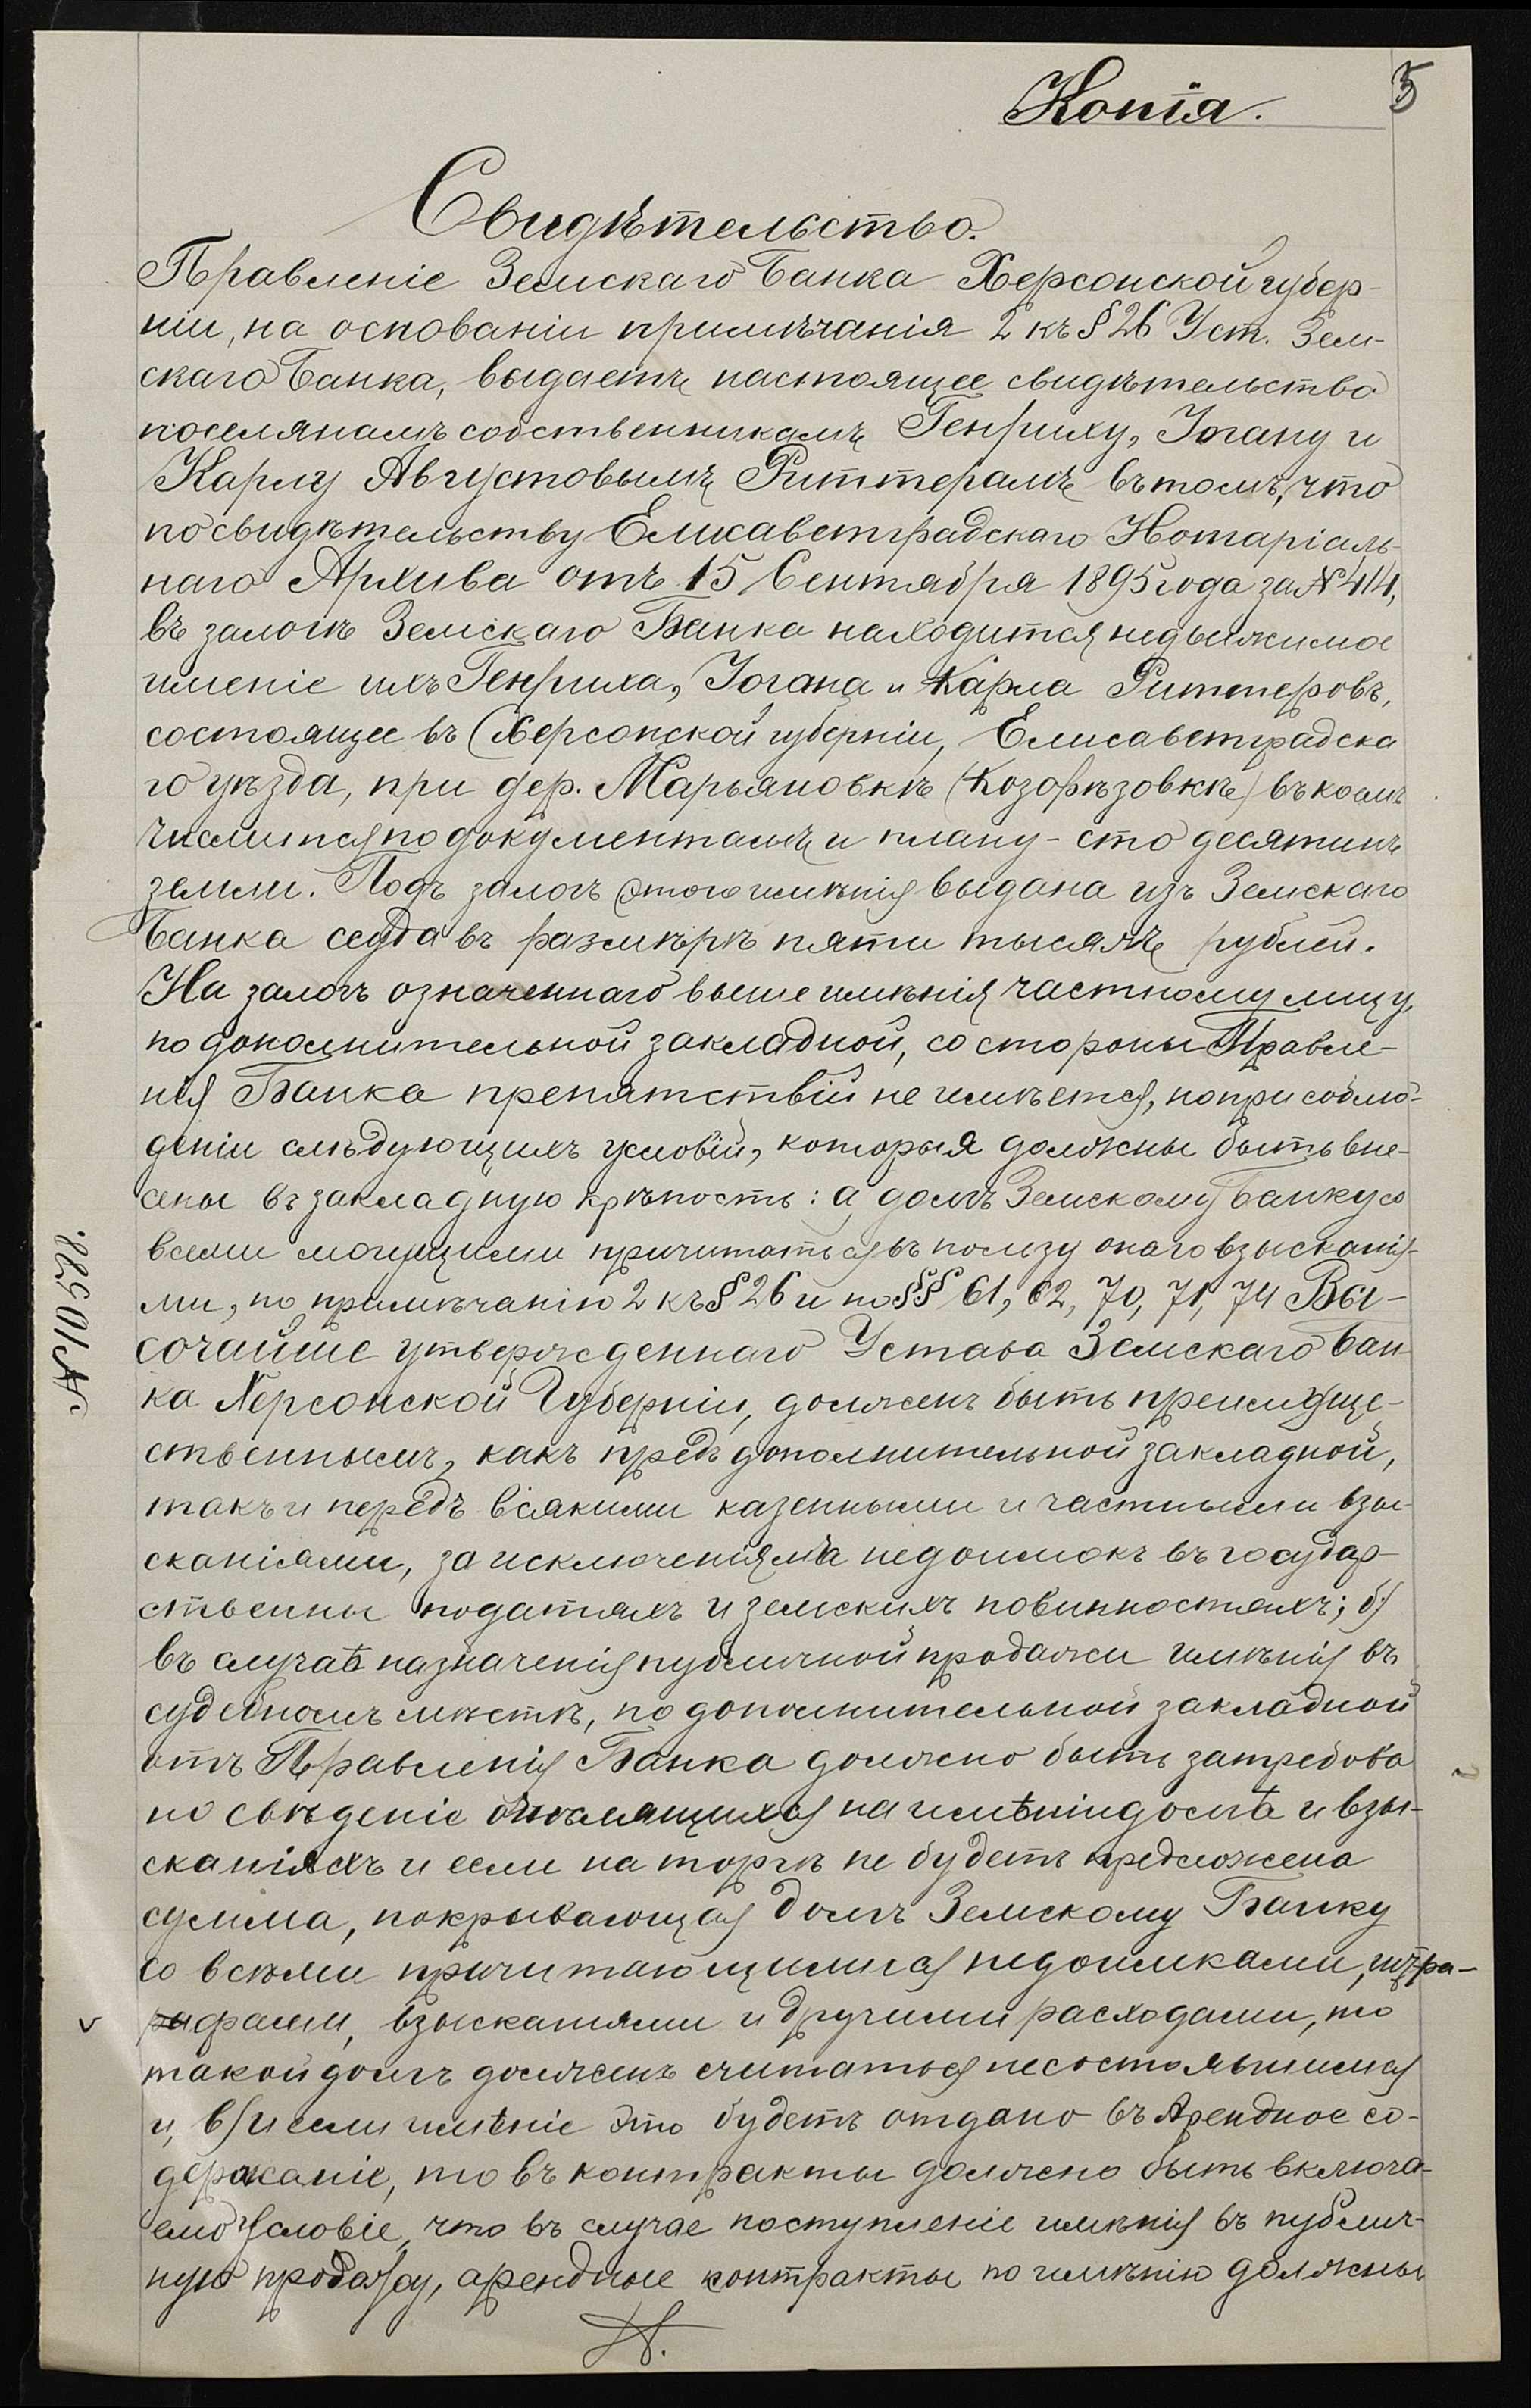 Копія.
5
Свидѣтельство.
Правленіе Земскаго Банка Херсонской губер-
ніи, на основаніи примѣчанія 2 къ § 26 Уст. Зем-
скаго Банка, выдаетъ настоящее свидѣтельство
поселянамъ собственникамъ Генриху, Іогану и
Карлу Августовымъ Риттерамъ въ томъ, что
по свидѣтельству Елисаветградскаго Нотаріаль-
наго Архива отъ 15 Сентября 1895 года за № 414,
въ залогѣ Земскаго Банка находится недвижимое
именіе ихъ Генриха, Іогана и Карла Риттеровъ,
состоящее въ Херсонской губерніи, Елисаветградска
го уѣзда, при дер. Марьяновкѣ (Козорѣзовкѣ) въ коемъ
числится по документамъ и плану - сто десятинъ
земли. Подъ залогъ этого имѣнія выдана изъ Земскаго
Банка ссуда въ размѣрѣ пяти тысячъ рублей.
На залогъ означеннаго выше имѣнія частному лицу,
по дополнительной закладной, со стороны Правле-
нія Банка препятствій не имѣется, но при соблю-
деніи слѣдующихъ условій, которыя должны быть вне-
сены въ закладную крѣпость: а) долгъ Земскому Банку со
всеми могущими причитаться въ пользу онаго взысканія-
ми, по примѣчанію 2 къ § 26 и по §§ 61, 62, 70, 71, 74 Вы-
сочайше утвержденнаго Устава Земскаго Бан-
ка Херсонской Губерніи, долженъ быть преимуще-
ственнымъ, какъ предъ дополнительной закладной,
такъ и передъ всякими казенными и частными взы-
сканіями, за исключеніямъ недоимокъ въ государ-
ственны податяхъ и земскихъ повинностяхъ; б)
въ случаѣ назначенія публичной продажи имѣнія въ
судебномъ мѣстѣ, по дополнительной закладной
отъ Правленія Банка должно быть затребова
но свѣденіе о числящихся на имѣніи долгѣ и взы-
сканіяхъ и если на торгѣ не будетъ предложена
сумма, покрывающая долгъ Земскому Банку
со всѣми причитающимися недоимками, штра-
фами, взысканіями и другими расходами, то
такой долгъ долженъ считаться несостоявшимся
и, в) и если имѣніе это будетъ отдано въ Арендное со-
держаніе, то въ контракты должно быть включа-
емо условіе, что въ случае поступленіе имѣнія въ публич-
ную продажу, арендные контракты по имѣнію должны
№ 10578.